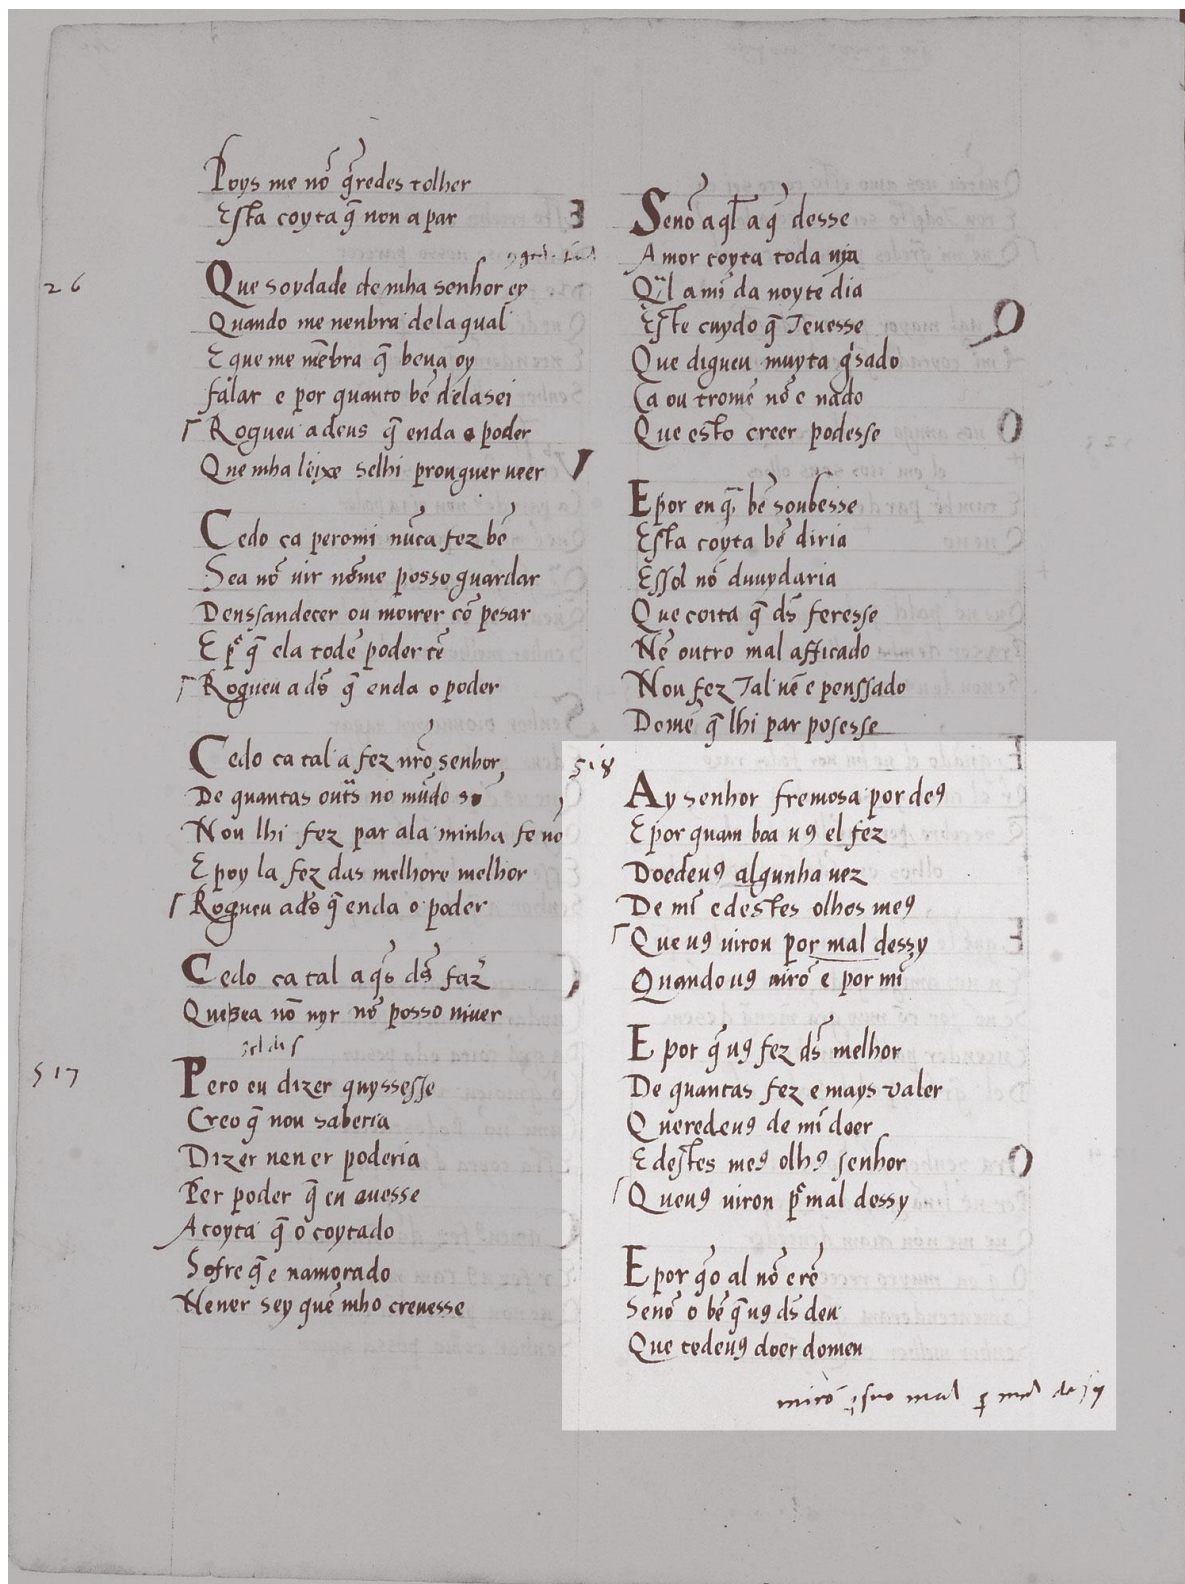 Poys me nõ q̃redes tolher
Esta coyta q̃ non a par
26
Que soydade de mha senhor ey
Quando me nenbra dela qual
E que me mẽbra q̃ bena oy
falar e por quanto bẽ dela sei
Rogueu a deus q̃ enda o poder
Que mha leixe selhi prouguer ueer
Cedo ca peromi nũca fez bẽ
Sea nõ uir nõme posso guardar
Denssandecer ou morrer cõ pesar
E p̃ q̃ ela todẽ poder tẽ
Rogueu a ds̃ q̃ enda o poder
Cedo ca tal a fez nrõ senhor
De quantas outs̃ no mũdo sõ
Nou lhi fez par ala minha fe nõ
E poy la fez das melhore melhor
Rogueu ads̃ q̃ enda o poder
Cedo ca tal a q̃s ds̃ faz̃
Quesea nõ uyr nõ posso uiuer
517
Pero eu dizer quyssesse
Creo q̃ nou saberia
Dizer nen er poderia
Per poder q̃ eu ouesse
A coyta q̃ o coytado
Sofre q̃ e namorado
Nener sey quẽ mho creuesse
Senõ aq̃l a q̃ desse
Amor coyta toda uia
Q̃l a mĩ da noyte dia
Este cuydo q̃ Teuesse
Que digueu muyta g̃sado
Ca outromẽ nõ e nado
Que esto creer podesse
E por en q̃ bẽ soubesse
Esta coyta bẽ diria
Essol nõ duuydaria
Que coita q̃ ds̃ feresse
Nẽ outro mal afficado
Nou fez Tal nẽ e penssado
Domẽ q̃ lhi par posesse
518
Ay senhor fremosa por deꝯ
E por quam boa uꝯ el fez
Doedeuꝯ algunha uez
De mĩ e destes olhos meꝯ
Que uꝯ uiron por mal dessy
Quando uꝯ uirõ e por mĩ
E por q̃ uꝯ fez ds̃ melhor
De quantas fez e mays ualer
Queredeuꝯ de mĩ doer
E destes meꝯ olhꝯ senhor
Queuꝯ uiron p̃ mal dessy
E por q̃o al nõ e rẽ
Senõ o bẽ q̃ uꝯ ds̃ deu
Que redeuꝯ doer domeu